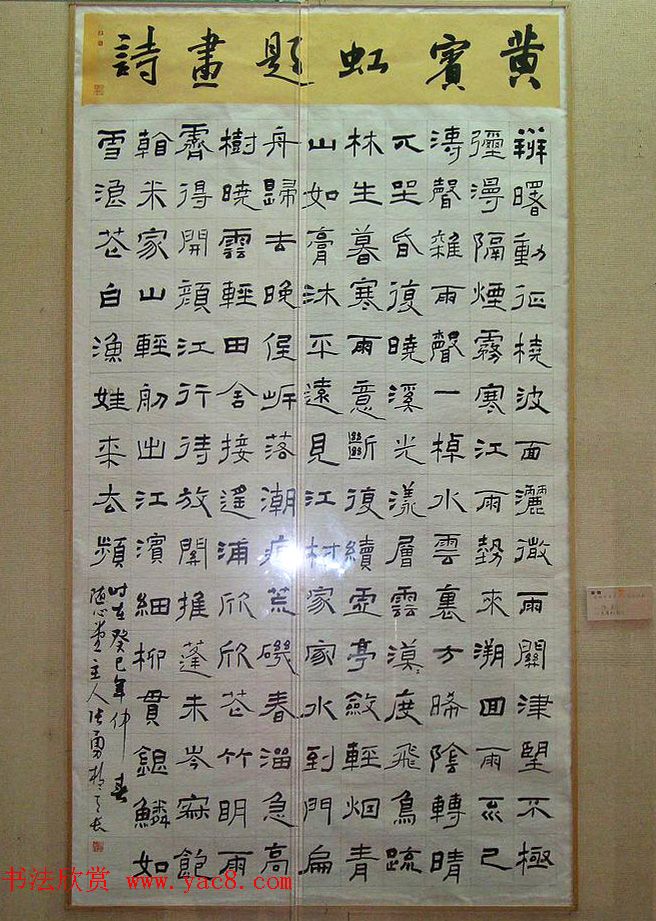 黄賓虹題畫詩
辨曙動征橈波面灑微雨關津望不極
彌漫隔煙霧寒江雨勢來溯回雨不已
濤聲雜雨聲一棹水雲裏方晞陰轉晴
兀坐昏復曉溪光漾層雲漠々度飛鳥疏
林生暮寒雨意斷復續虛亭斂輕烟青
山如膏沐平遠見江村家家水到門扁
舟歸去晚侵岍落潮痕荒磯春溜急高
樹曉雲輕田舍接遥浦欣欣花竹明雨
霽得開顔江行待放關推蓬未岑寂飽
看米家山輕舠出江濱細柳貫鱗如
雪浪花白漁娃來去頻
时在癸巳年仲春
随心堂主人张勇於天長
书法欣赏 www.yac8.com